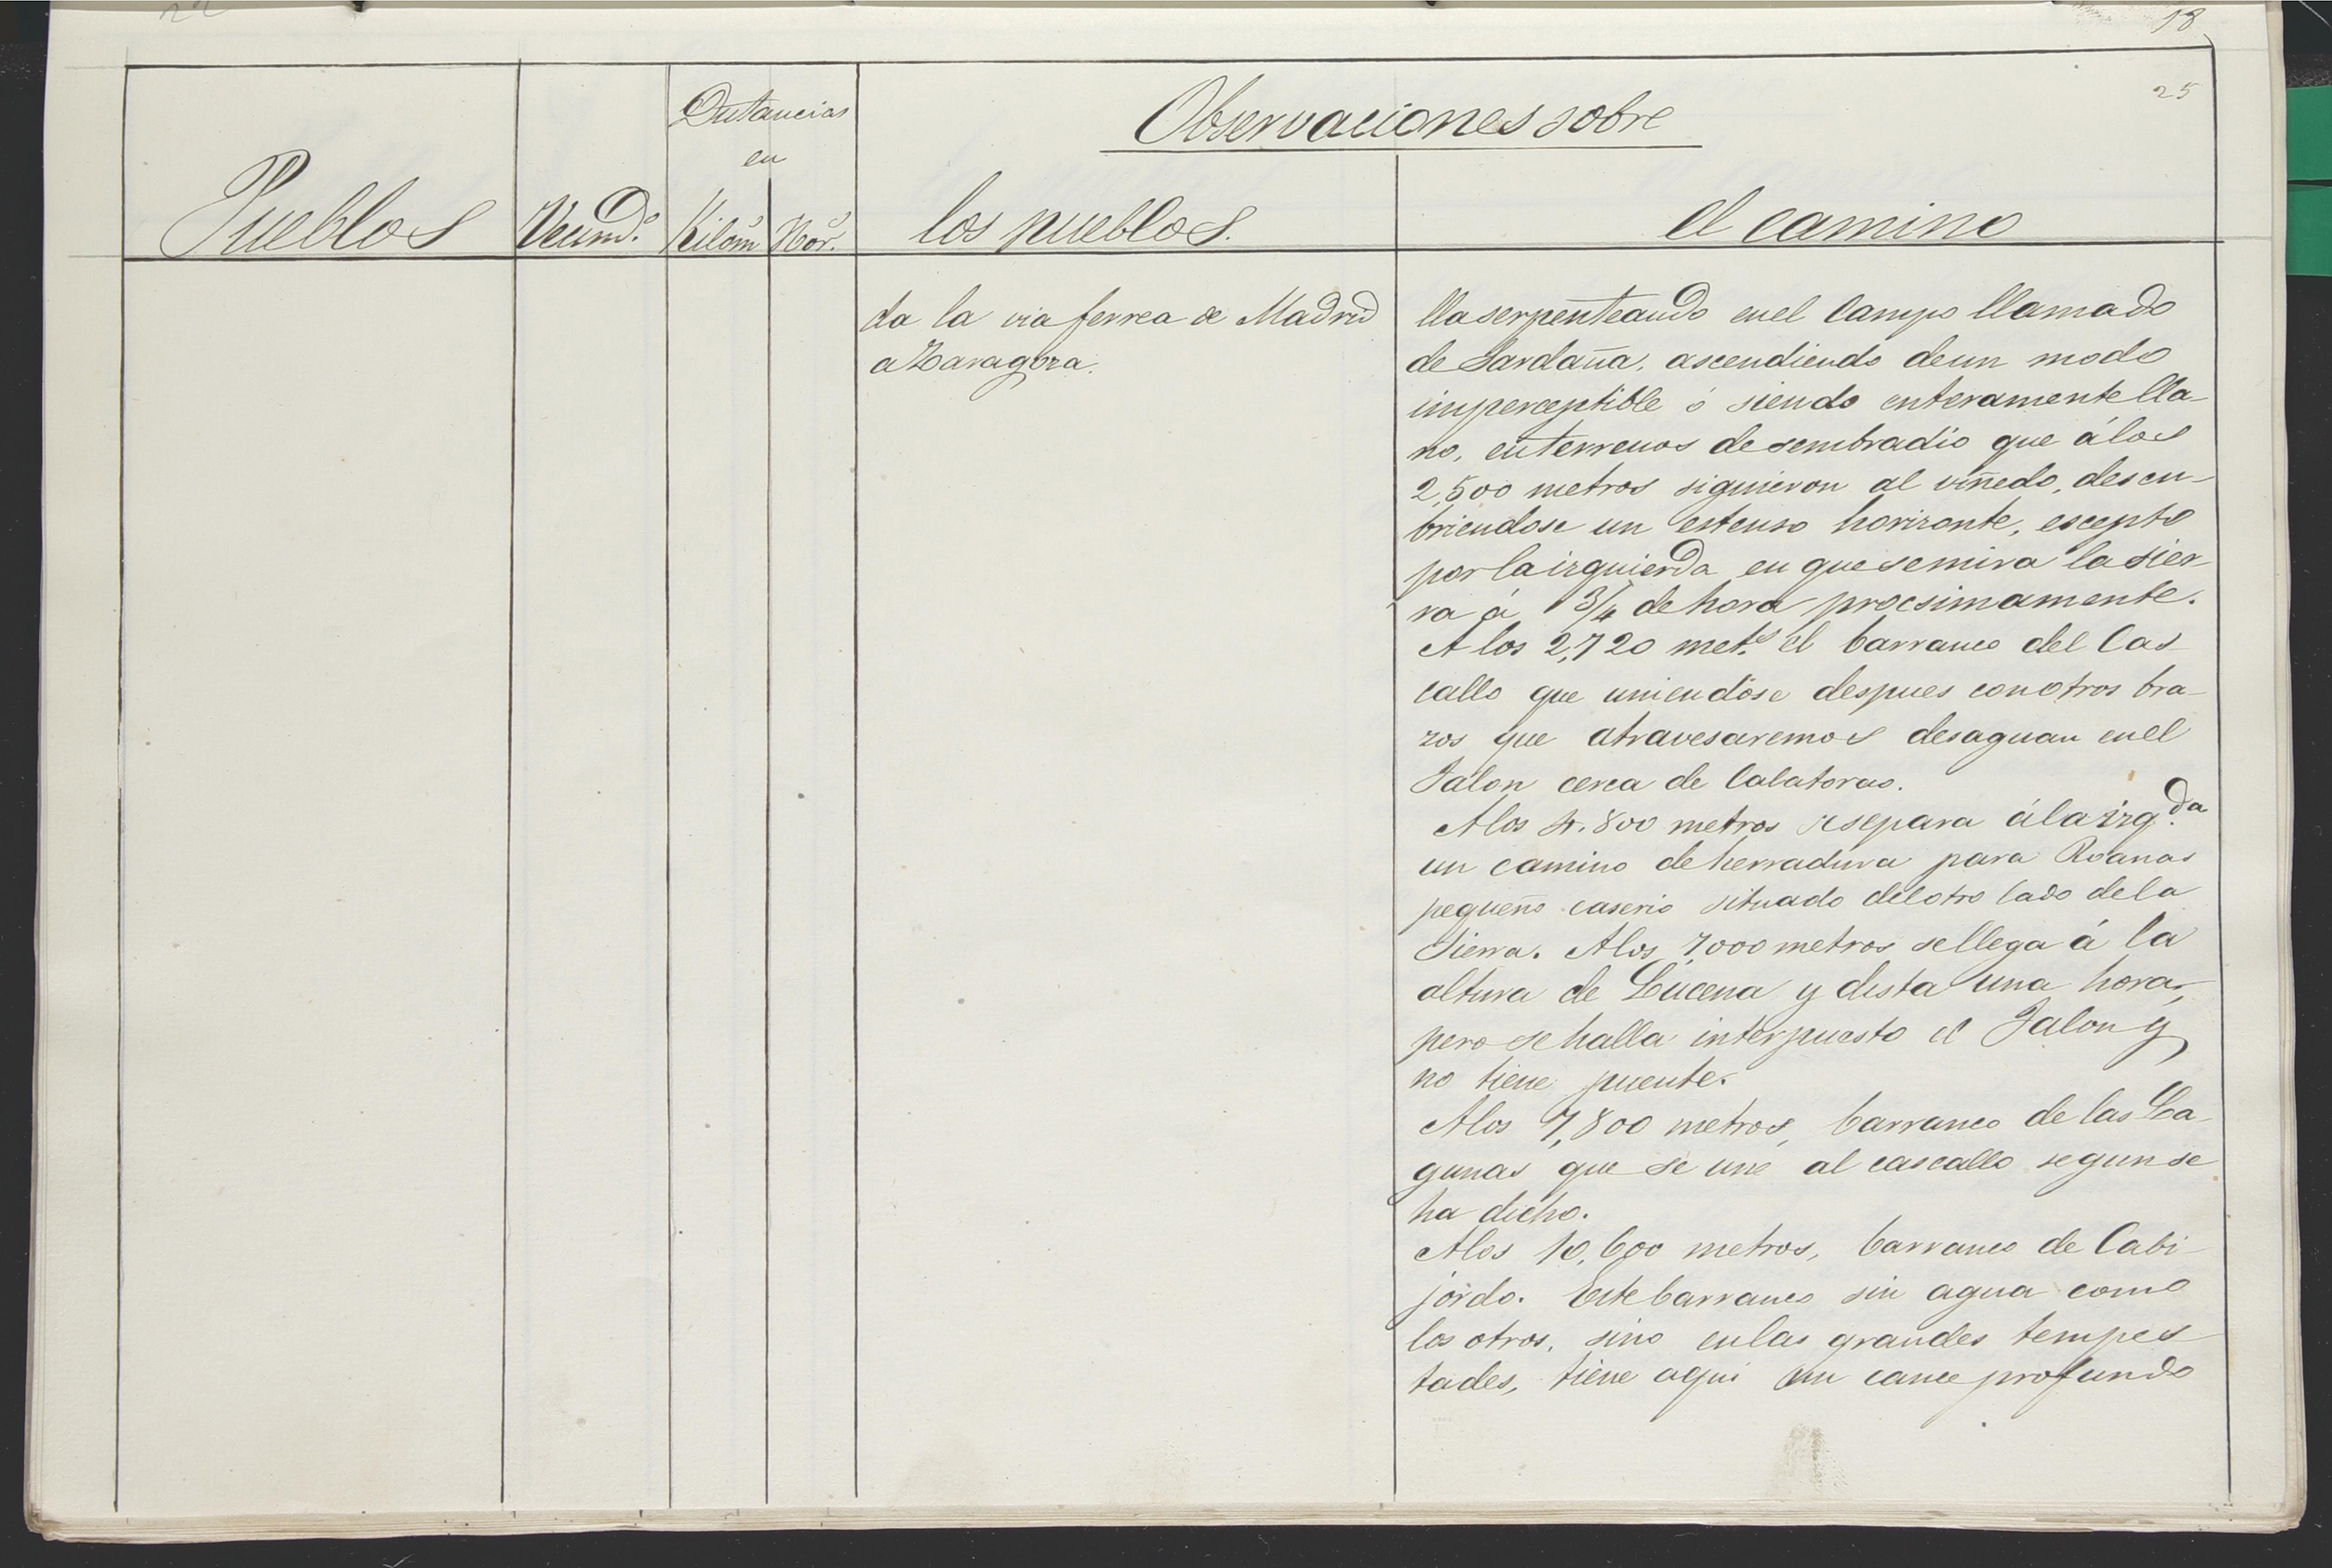 22
18
25
Distancias
en
Observaciones sobre
Pueblos Vecind.º Kilóm.s Hor.s los pueblos. el camino
da la via ferrea de Madrid
a Zaragoza.
lla serpenteando en el Campo llamado
de Sardaña, ascendiendo de un modo
imperceptible ó siendo enteramente lla-
no, en terrenos de sembradio que á los
2,500 metros siguieron al viñedo, descu-
briendose un estenso horizonte, escepto
por la izquierda en que se mira la sier-
ra á 3/4 de hora procsimamente.
A los 2,720 met.s el barranco del Cas
callo que uniendose despues con otros bra-
zos que atravesaremos desaguan en el
Jalon cerca de Calatorao.
A los 4.800 metros se separa á la izq.da
un camino de herradura para Roanas
pequeño caserio situado del otro lado de la
Sierra. A los 7,000 metros se llega á la
altura de Lucena y dista una hora,
pero se halla interpuesto el Jalon y
no tiene puente.
A los 7,800 metros, barranco de las La-
gunas que se une al cascallo segun se
ha dicho.
A los 10,600 metros, barranco de Cabi-
jordo. Este barranco sin agua como
los otros, sino en las grandes tempes
tades, tiene aqui un cauce profundo